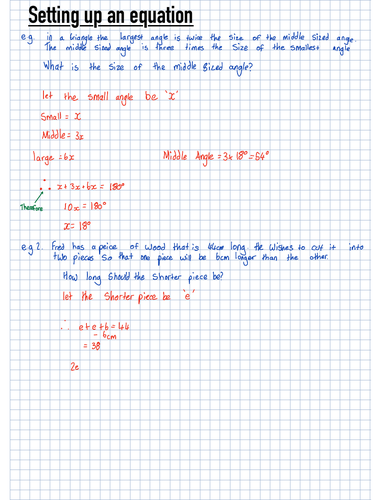 Setting up an equation
e.g. in a triangle the largest angle is twice the size of the middle sized ange.
The middle sized angle is three times the size of the smallest angle
What is the size of the middle sized angle?
let the small angle be 'x'
Small = x
Middle = 3x
large = 6x
Middle Angle = 3x18° = 54°
∴ x + 3x + 6x = 180°
Therefore
10x = 180°
x = 18°
e.g 2. Fred has a peice of wood that is 44cm long. He wishes to cut it into
two pieces so that one piece will be 6cm larger than the other.
How long should the shorter piece be?
let the shorter piece be 'e'
∴ e + e + 6 = 44
- 6cm
= 38
2e